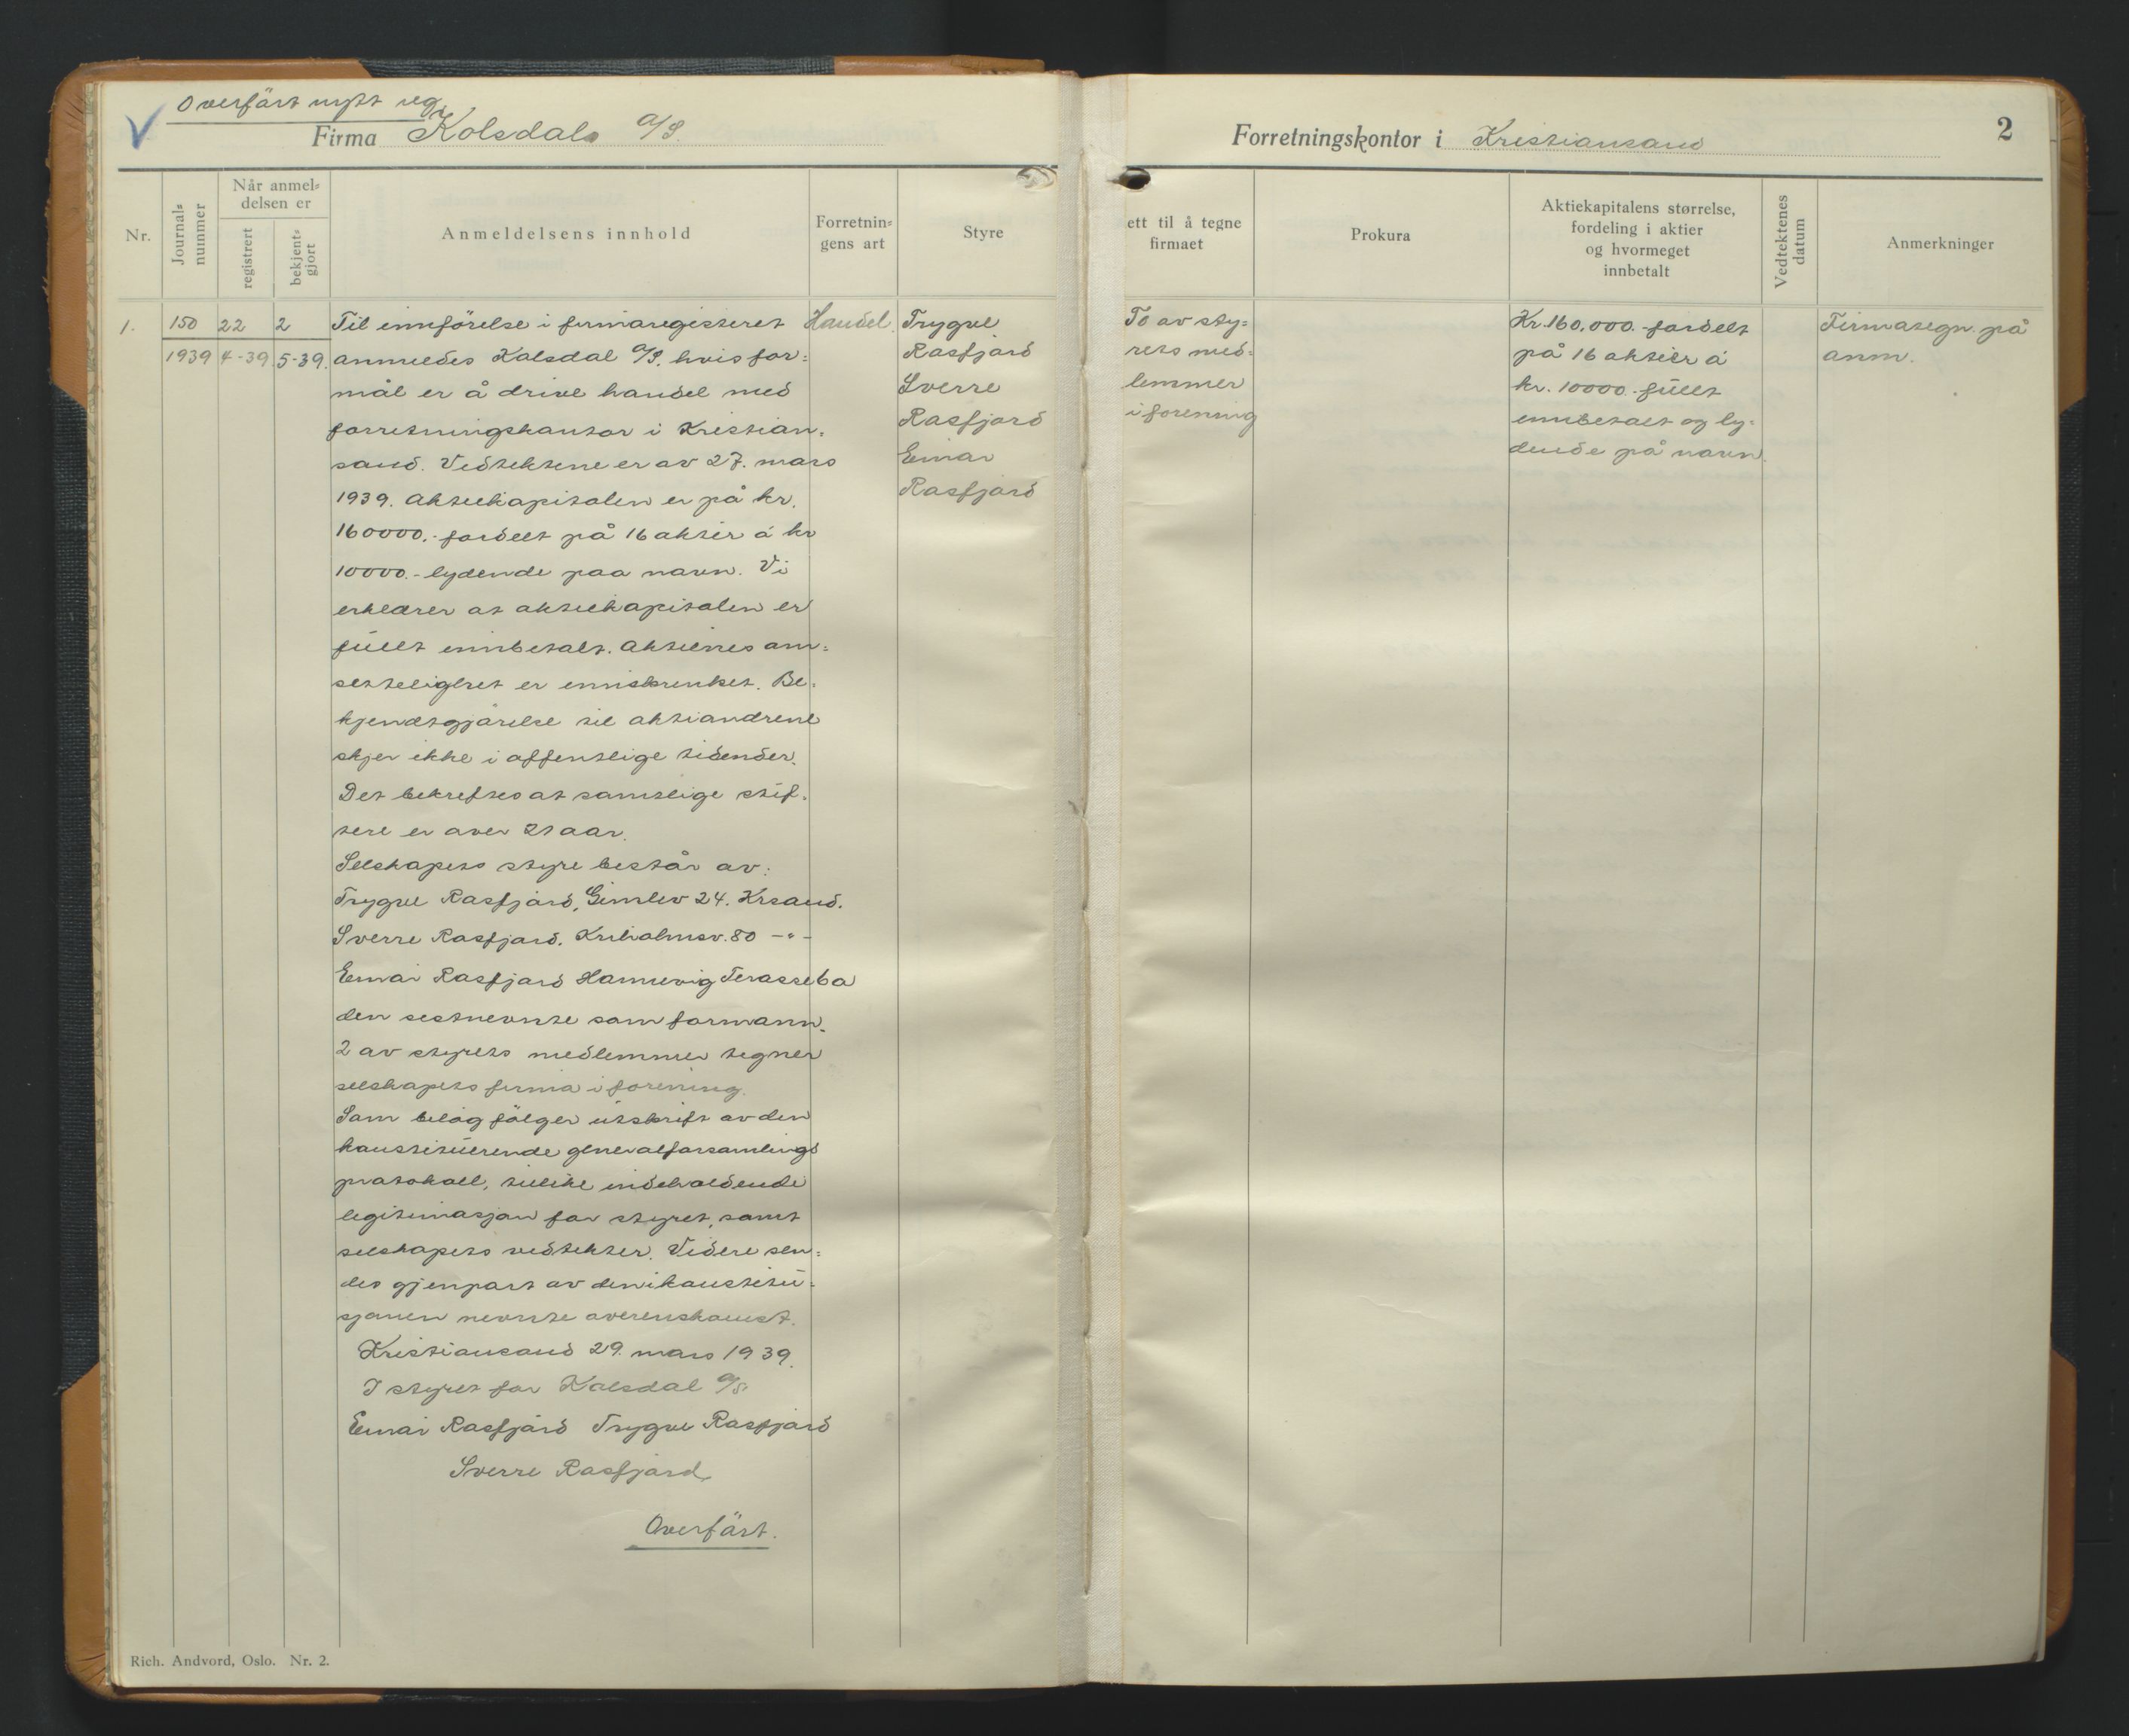 Overfört nytt reg.
V
Firma Kolsdal A/S.
Forretningskontor i Kristiansand
2
Nr.
Journal=
nummer
Når anmel=
delsen er
registrert
bekjent=
gjort
Anmeldelsens innhold
Forretnin=
gens art
Styre
ett til å tegne
firmaet
Prokura
Aktiekapitalens størrelse,
fordeling i aktier
og hvormeget
innbetalt
Vedtektenes
datum
Anmerkninger
1. 150 22 2
1939 4-39 5-39.
Til innförelse i firmaregisteret
anmeldes Kolsdal A/S. hvis for=
mål er å drive handel med
forretningskontor i Kristian=
sand. Vedtektene er av 27. mars
1939. Aktiekapitalen er på kr.
160000.- fordelt på 16 aktier á kr
10000.- lydende paa navn. Vi
erklærer at aktiekapitalen er
fullt innbetalt. Aktienes om=
settelighet er innskrenket. Be=
kjendtgjörelse til aktionærene
skjer ikke i offentlige tidender.
Det bekreftes at samtlige stif=
tere er over 21 aar.
Selskapets styre består av:
Trygve Rasfjord, Gimlev 24. Krsand.
Sverre Rasfjord. Kuholmsv. 80 -"-
Einar Rasfjord Hannevig Terasse 6a
den sistnevnte som formann.
2 av styrets medlemmer tegner
selskapets firma i forening.
Som bilag fölger utskrift av den
konstituerende generalforsamlings
protokoll, tillike indeholdende
legitimasjon for styret, samt
selskapets vedtekter. Videre sen=
des gjenpart av den i konstitu=
sjonen nevnte overenskomst.
Kristiansand 29. mars 1939.
I styret for Kolsdal A/S
Einar Rasfjord Trygve Rasfjord
Sverre Rasfjord
Overfört.
Handel.
Trygve
Rasfjord
Sverre
Rasfjord
Einar
Rasfjord
To av sty=
rets med=
lemmer
i forening
Kr. 160.000.- fordelt
på 16 aktier á
kr. 10000.- fullt
innbetalt og ly=
dende på navn.
Firmategn. på
anm.
Rich. Andvord, Oslo. Nr. 2.